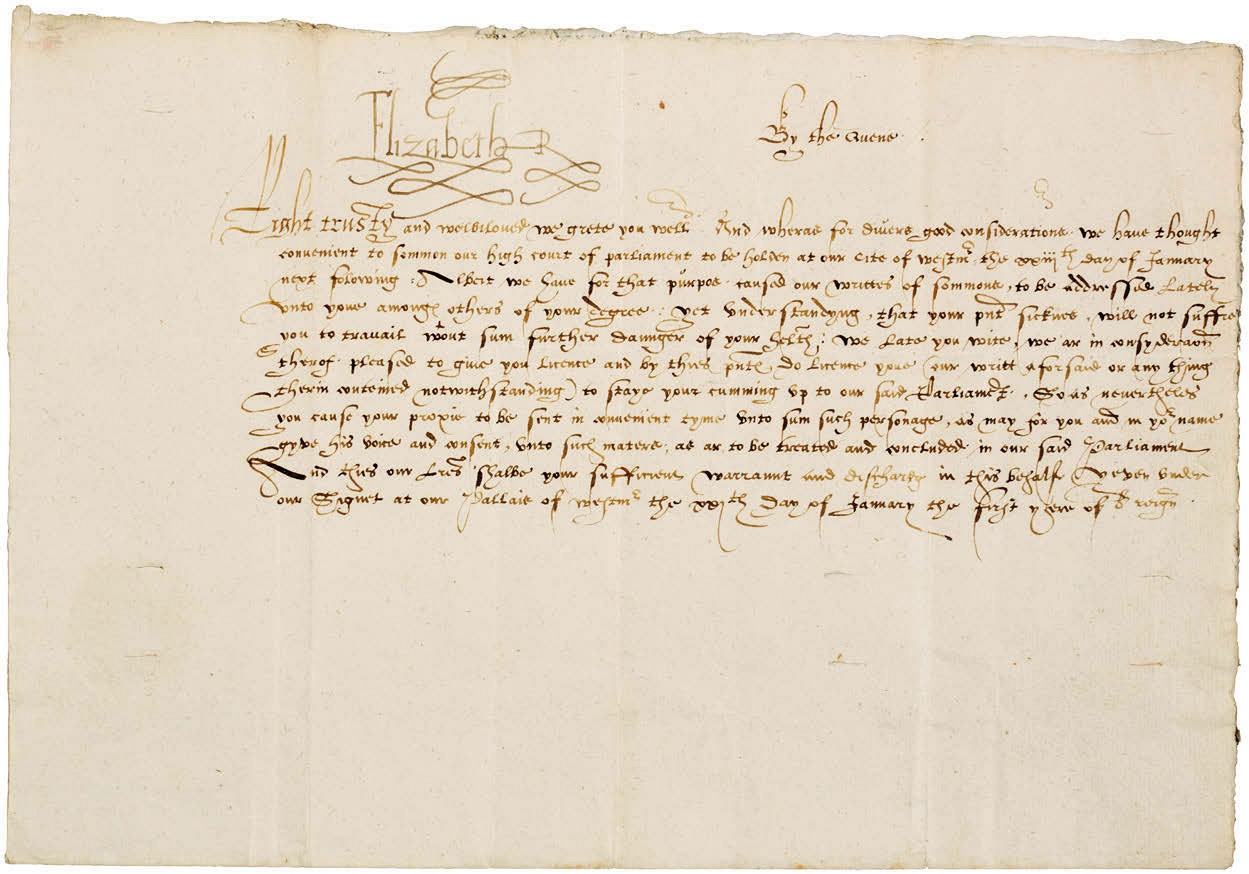 Elizabeth R
By the Quene
Right trusty and welbiloved we grete you well. And wheras for divers good considerations we have thought
convenient to sommon our high court of parliament to be holden at our Cite of Westmr the xxiijth day of January
next folowing: Albeit we have for that purpos caused our writtes of sommons, to be addressed Lately
unto youe amongs others of your degree: yet understandyng, that your pnt siknes, will not suffre
you to travail wtout sum further daunger of your helth: we Late you wite, we ar in consyderacon
therof pleased to give you licence and by thies pnts, do licence youe (our writt aforsaid or any thing
therin conteined notwithstanding) to staye your cumming up to our said Parliament. So as nevertheles
you cause your proxie to be sent in convenient tyme unto sum such personage, as may for you and in yor name
gyve his voice and consent, unto such maters, as ar to be treated and concluded in our said Parliament
And thies our Lres shalbe your sufficient warraunt and discharge in this behalf. Yeven under
our Signet at our Pallais of westmr the xxjth Day of January the first yere of or reign.